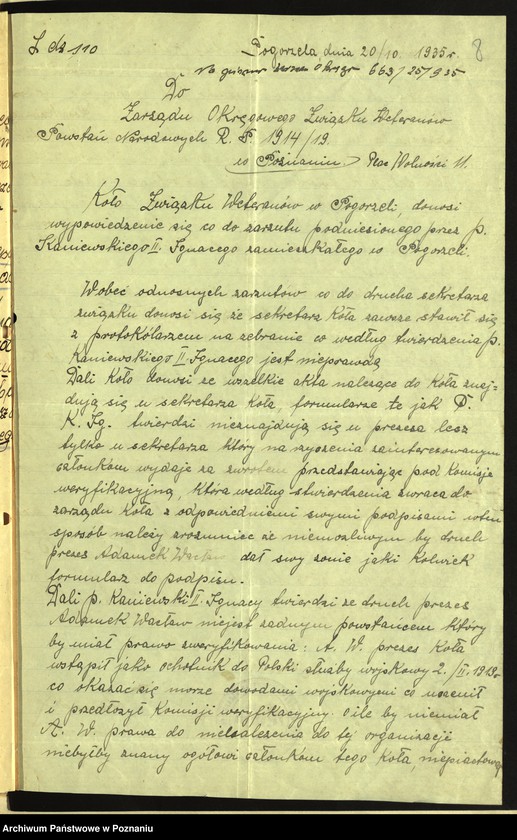 L dz 110
Pogorzela dnia 20/10. 1935 r. 8
Na pismo Okręgu 663/25/935
Do
Zarządu Okręgowego Związku Weteranów
Powstań Narodowych R. P. 1914/19.
w Poznaniu. Plac Wolności 11.
Koło Związku Weteranów w Pogorzeli, donosi
wypowiedzenie się co do zarzutu podniesionego przez p.
Kaniewskiego II. Ignacego zamieszkałego w Pogorzeli.
Wobec odnosnych zarzutow co do drucha sekretarza
związku donosi się że sekretarz Koła zawsze stawił się
z protokólarzem na zebranie co według twierdzenia p.
Kaniewskiego II Ignacego jest nieprawdą
Dali Koło donosi ze wszelkie akta nalezące do Koła znaj-
dują się u sekretarza Koła, formularze te jak P.
K. Ig. twierdzi nieznajdują się u prezesa lecz
tylko u sekretarza który na zyczenia zainteresowanym
członkom wydaje za zwrotem przedstawiając pod Komisje
weryfikacyjną, która według stwierdzenia zwraca do
zarządu Koła z odpowiedniemi swymi podpisami
sposób nalezy zrozumiec że niemozliwym by druch
prezes Adamek dał swy zonie jaki kolwiek
formularz do podpisu.
Dali p. Kaniewski II. Ignacy twierdzi ze druch prezes
Adamek Wacław niejest zadnym powstańcem który
by miał prawo zweryfikowania: A. W. prezes Koła
wstąpił jako ochotnik do Polski służby wojskowy 2./II. 1919r
co okazac się może dowodami wojskowymi co uczenił
i przedłożył Komisji weryfikacyjny. O ile by niemiał
A. W. prawa do nalezenia do tej organizacje
niebyłby znany ogółowi członkom tego Koła,
Archiwum Państwowe w Poznaniu
Archiwum Państwowe w Poznaniu